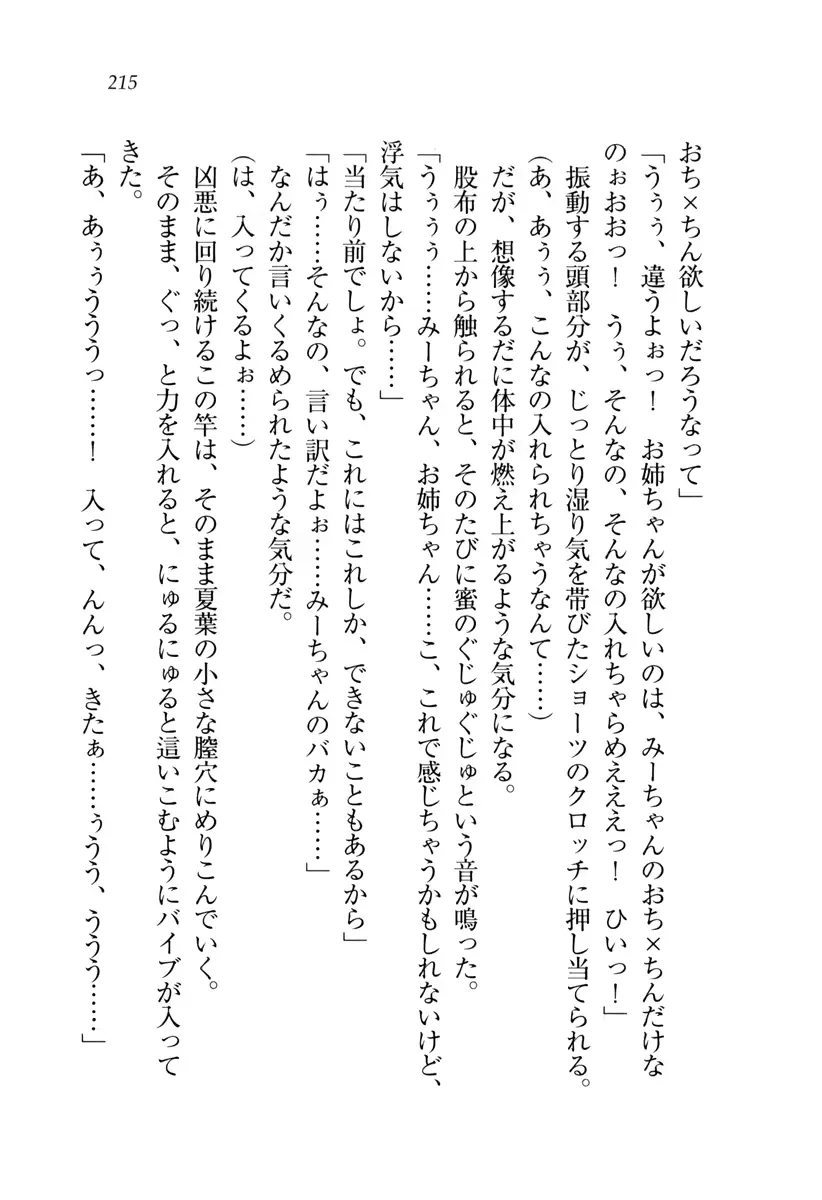 215
おち×ちん欲しいだろうなって」
「うぅぅ、違うよぉっ！　お姉ちゃんが欲しいのは、みーちゃんのおち×ちんだけな
のぉおおっ！　うぅ、そんなの、そんなの入れちゃらめえええっ！　ひいっ！」
振動する頭部分が、じっとり湿り気を帯びたショーツのクロッチに押し当てられる。
(あ、あぅぅ、こんなの入れられちゃうなんて……)
だが、想像するだに体中が燃え上がるような気分になる。
股布の上から触られると、そのたびに蜜のぐじゅぐじゅという音が鳴った。
「うぅぅぅ……みーちゃん、お姉ちゃん……こ、これで感じちゃうかもしれないけど、
浮気はしないから……」
「当たり前でしょ。でも、これにはこれしか、できないこともあるから」
「はぅ……そんなの、言い訳だよぉ……みーちゃんのバカぁ……」
なんだか言いくるめられたような気分だ。
(は、入ってくるよぉ……)
凶悪に回り続けるこの竿は、そのまま夏葉の小さな膣穴にめりこんでいく。
そのまま、ぐっ、と力を入れると、にゅるにゅると這いこむようにバイブが入って
きた。
「あ、あぅぅううっ……！　入って、んんっ、きたぁ……ぅうう、ううう……」